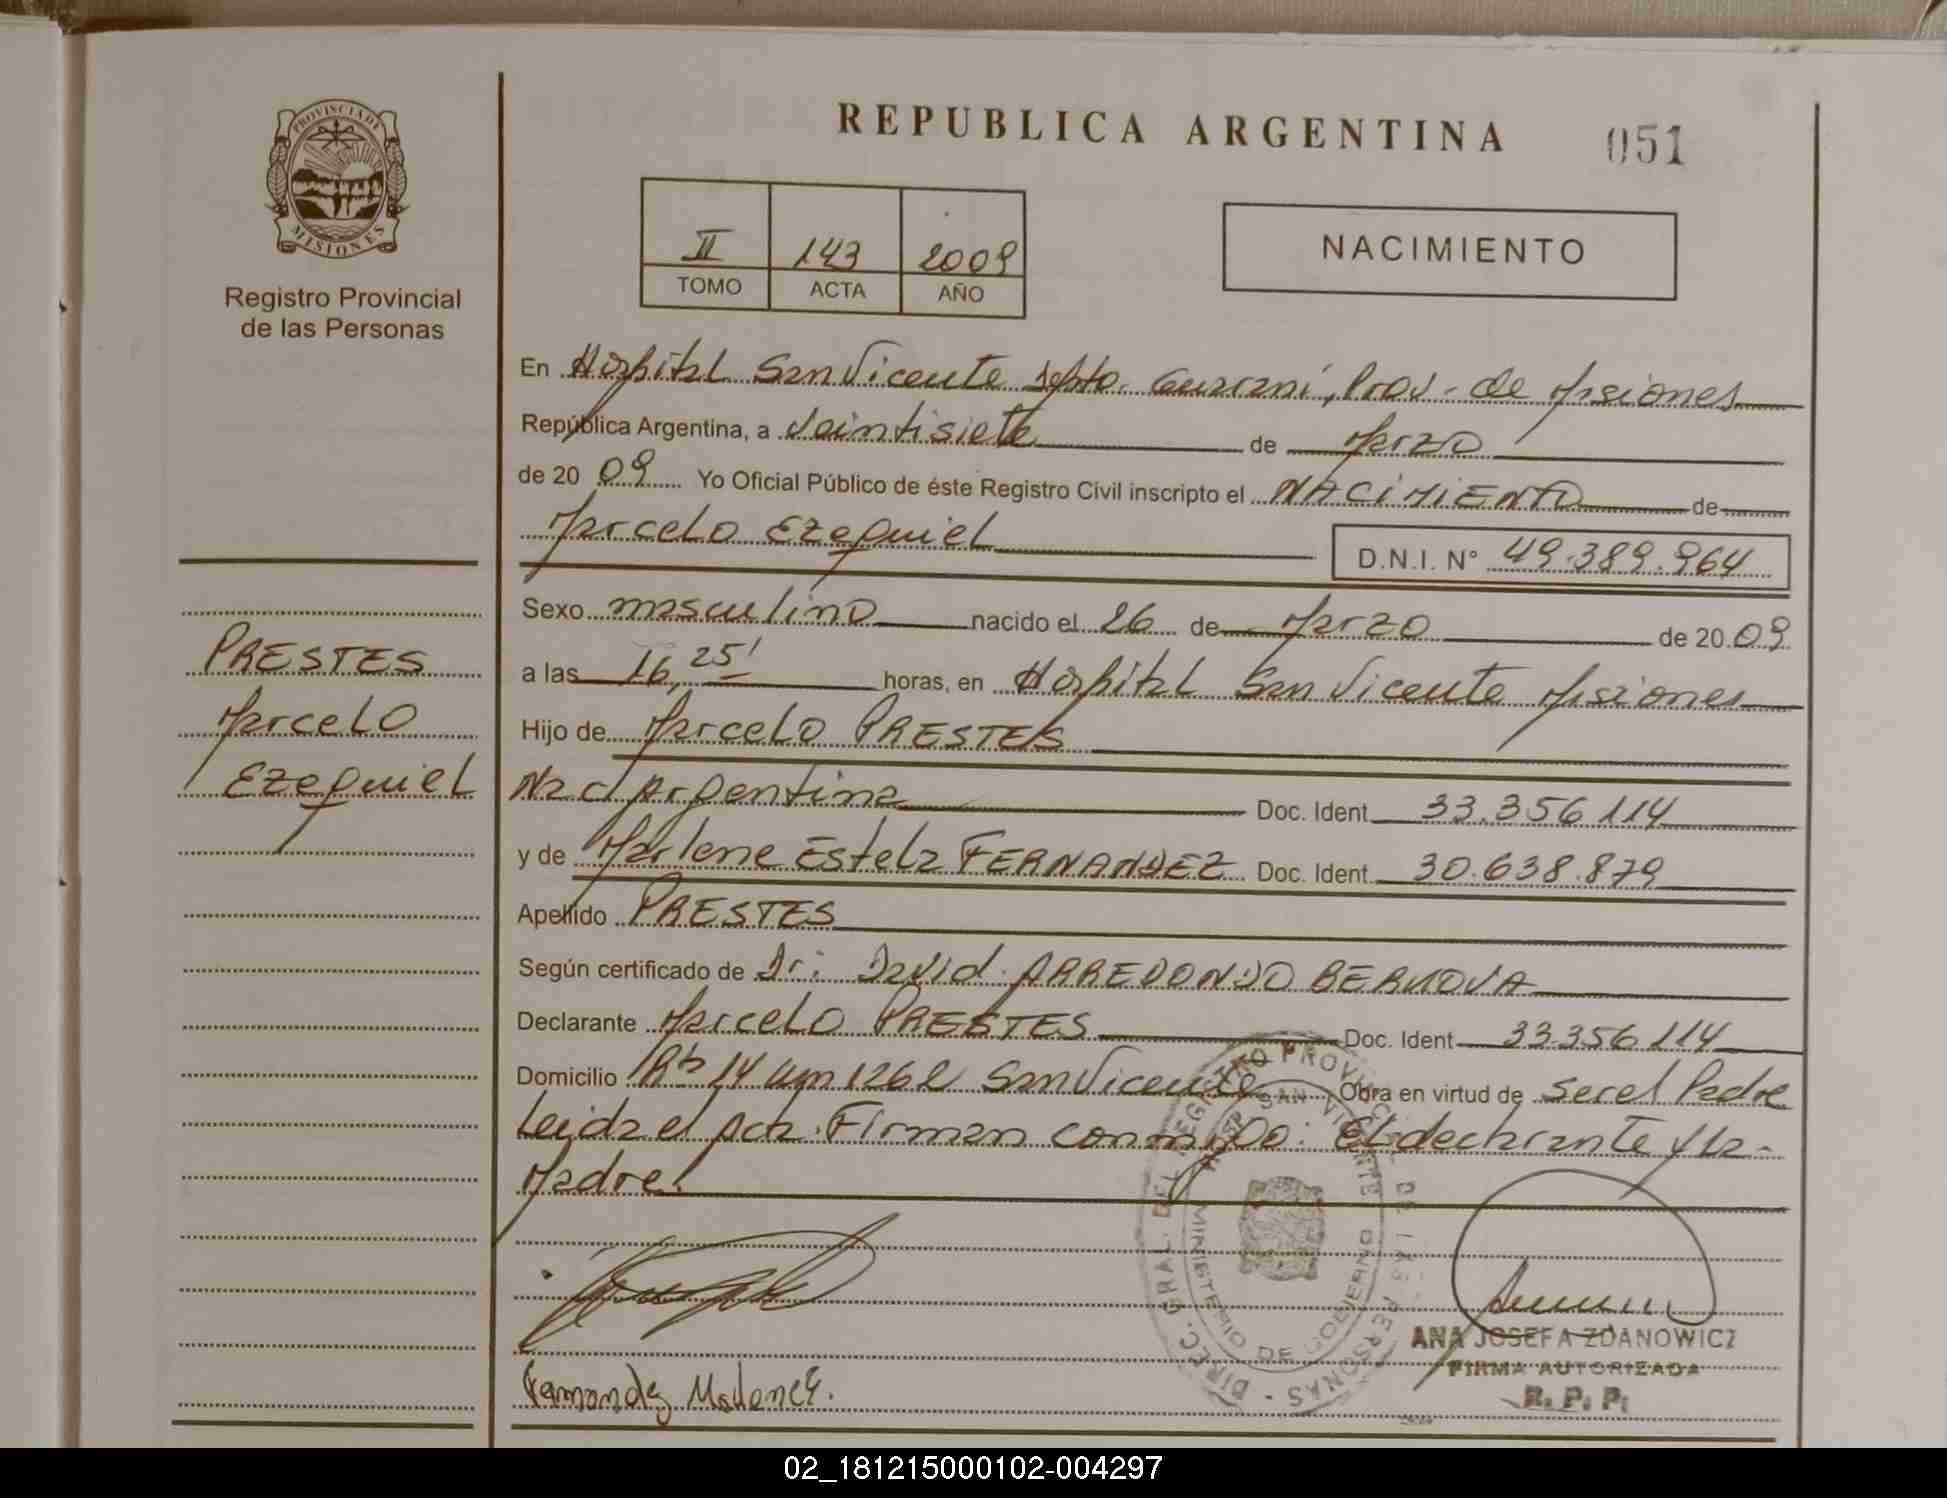 PROVINCIA DE
MISIONES
Registro Provincial
de las Personas
PRESTES
Marcelo
Ezequiel
REPUBLICA ARGENTINA 051
II 143 2009
TOMO ACTA AÑO
NACIMIENTO
En Hospital San Vicente Depto. Guarani, Prov. de Misiones
República Argentina, a veintisiete de Marzo
de 20 09 Yo Oficial Público de éste Registro Civil inscripto el NACIMIENTO de
Marcelo Ezequiel D.N.I. N° 49.389.964
Sexo masculino nacido el 26 de Marzo de 20 09
a las 16,25' horas, en Hospital San Vicente Misiones
Hijo de Marcelo PRESTES
Nac Argentina Doc. Ident 33.356.114
y de Marlene Estela FERNANDEZ Doc. Ident 30.638.879
Apellido PRESTES
Según certificado de Dr: David ARREDONDO
Declarante Marcelo PRESTES Doc. Ident 33.356.114
Domicilio 14 Km 1262 San Vicente Obra en virtud de ser el Padre
Leida el Acta. Firman conmigo: El declarante y la
Madre.
DIREC. GRAL. DEL REGISTRO PROVINCIAL DE LAS PERSONAS
SAN VICENTE
MINISTERIO DE GOBIERNO
ANA JOSEFA ZDANOWICZ
FIRMA AUTORIZADA
R. P. P.
02_181215000102-004297